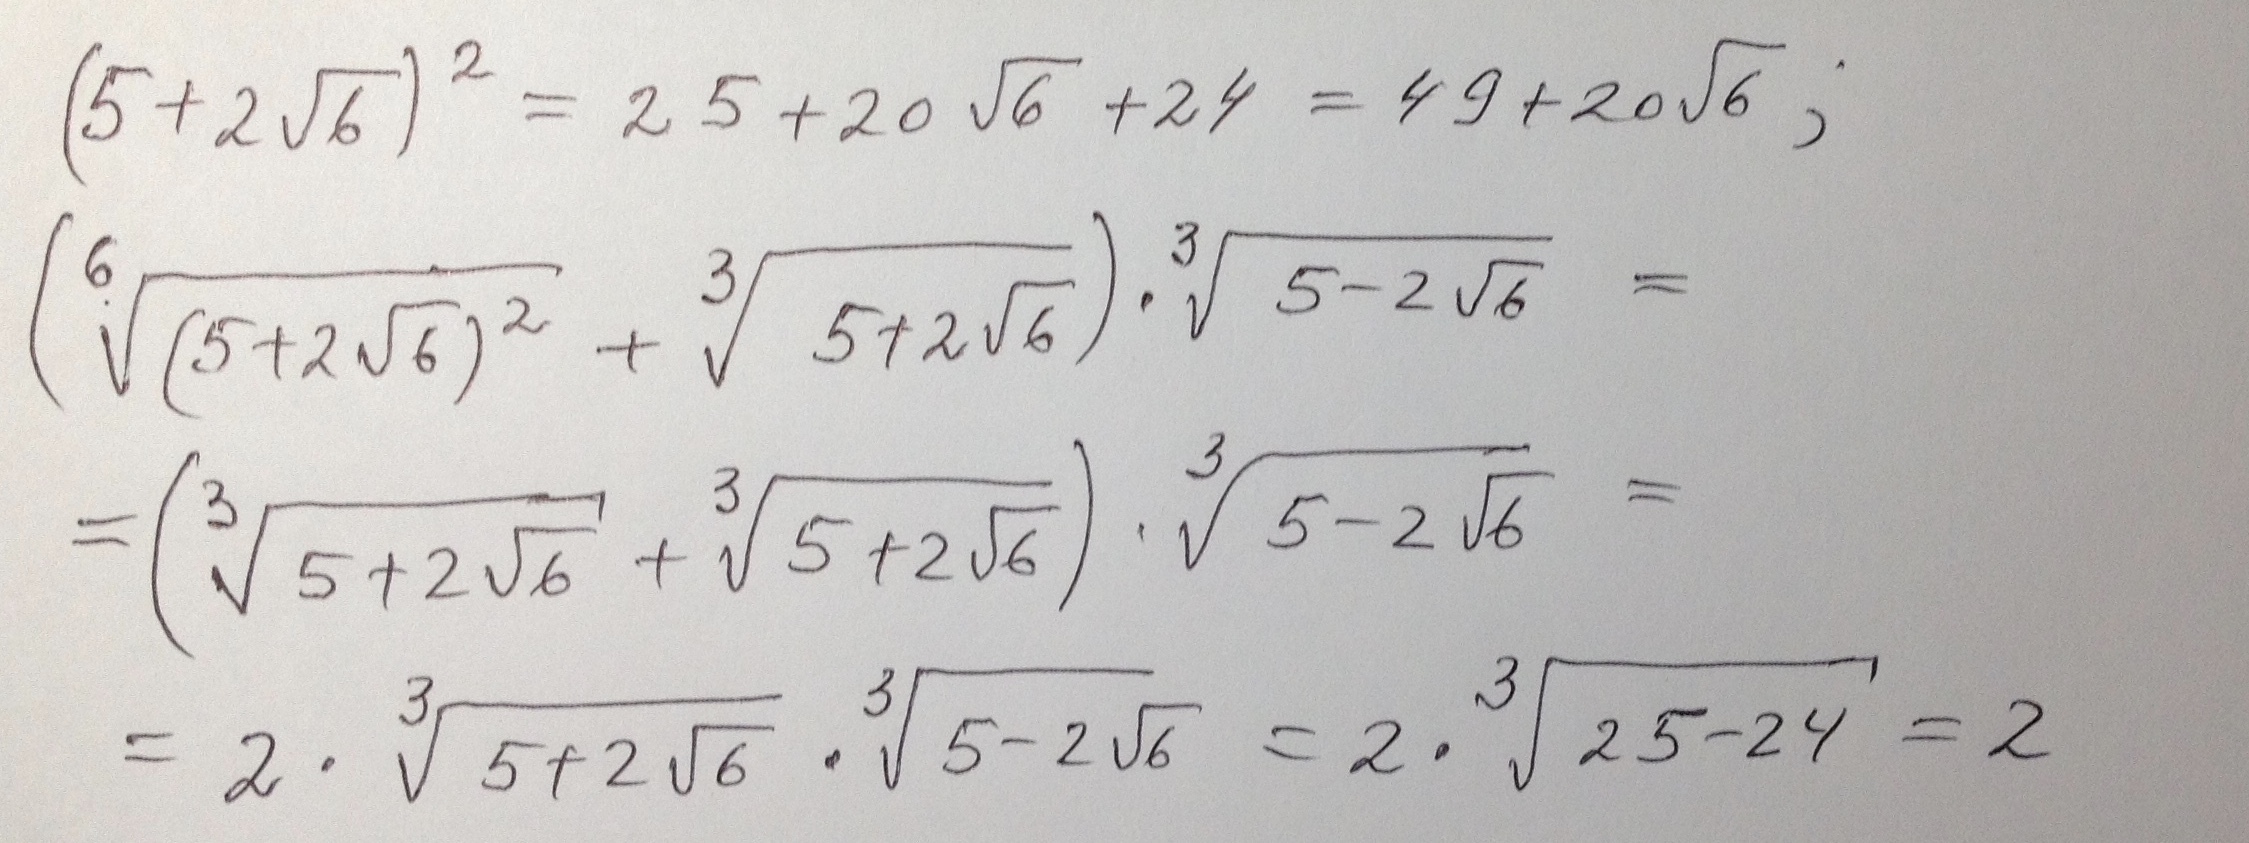 (5+2√6)² = 25+20√6+24 = 49+20√6;
(⁶√((5+2√6)²) + ³√(5+2√6)) · ³√(5-2√6) =
= (³√(5+2√6) + ³√(5+2√6)) · ³√(5-2√6) =
= 2 · ³√(5+2√6) · ³√(5-2√6) = 2 · ³√(25-24) = 2